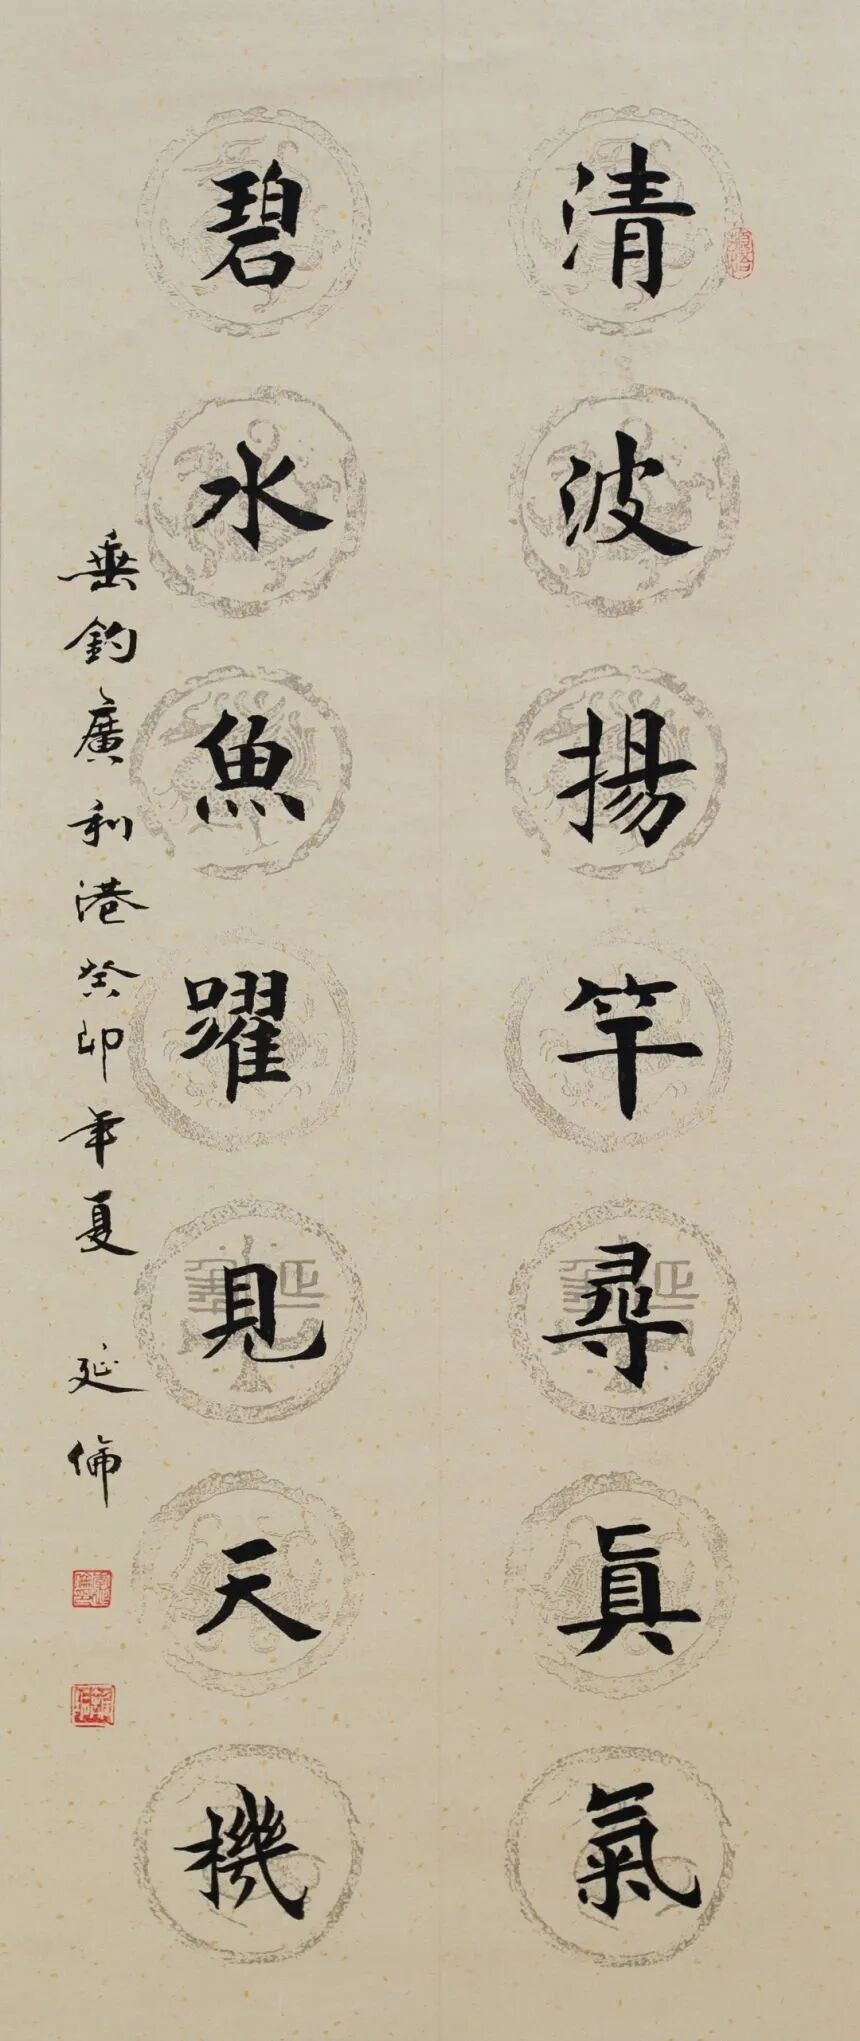 清波揚竿尋真氣
碧水魚躍見天機
垂釣廣利港癸卯年夏 延倫